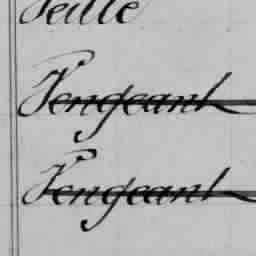 Veille
Vengeant
Vengeant